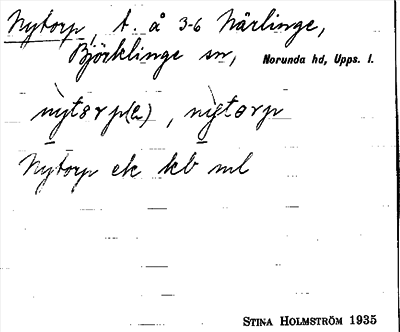 Nytorp, t. å 3-6 Närlinge,
Björklinge sn, Norunda hd, Upps. l.
nytorp(e), nytorp
Nytorp ek kb ml
STINA HOLMSTRÖM 1935